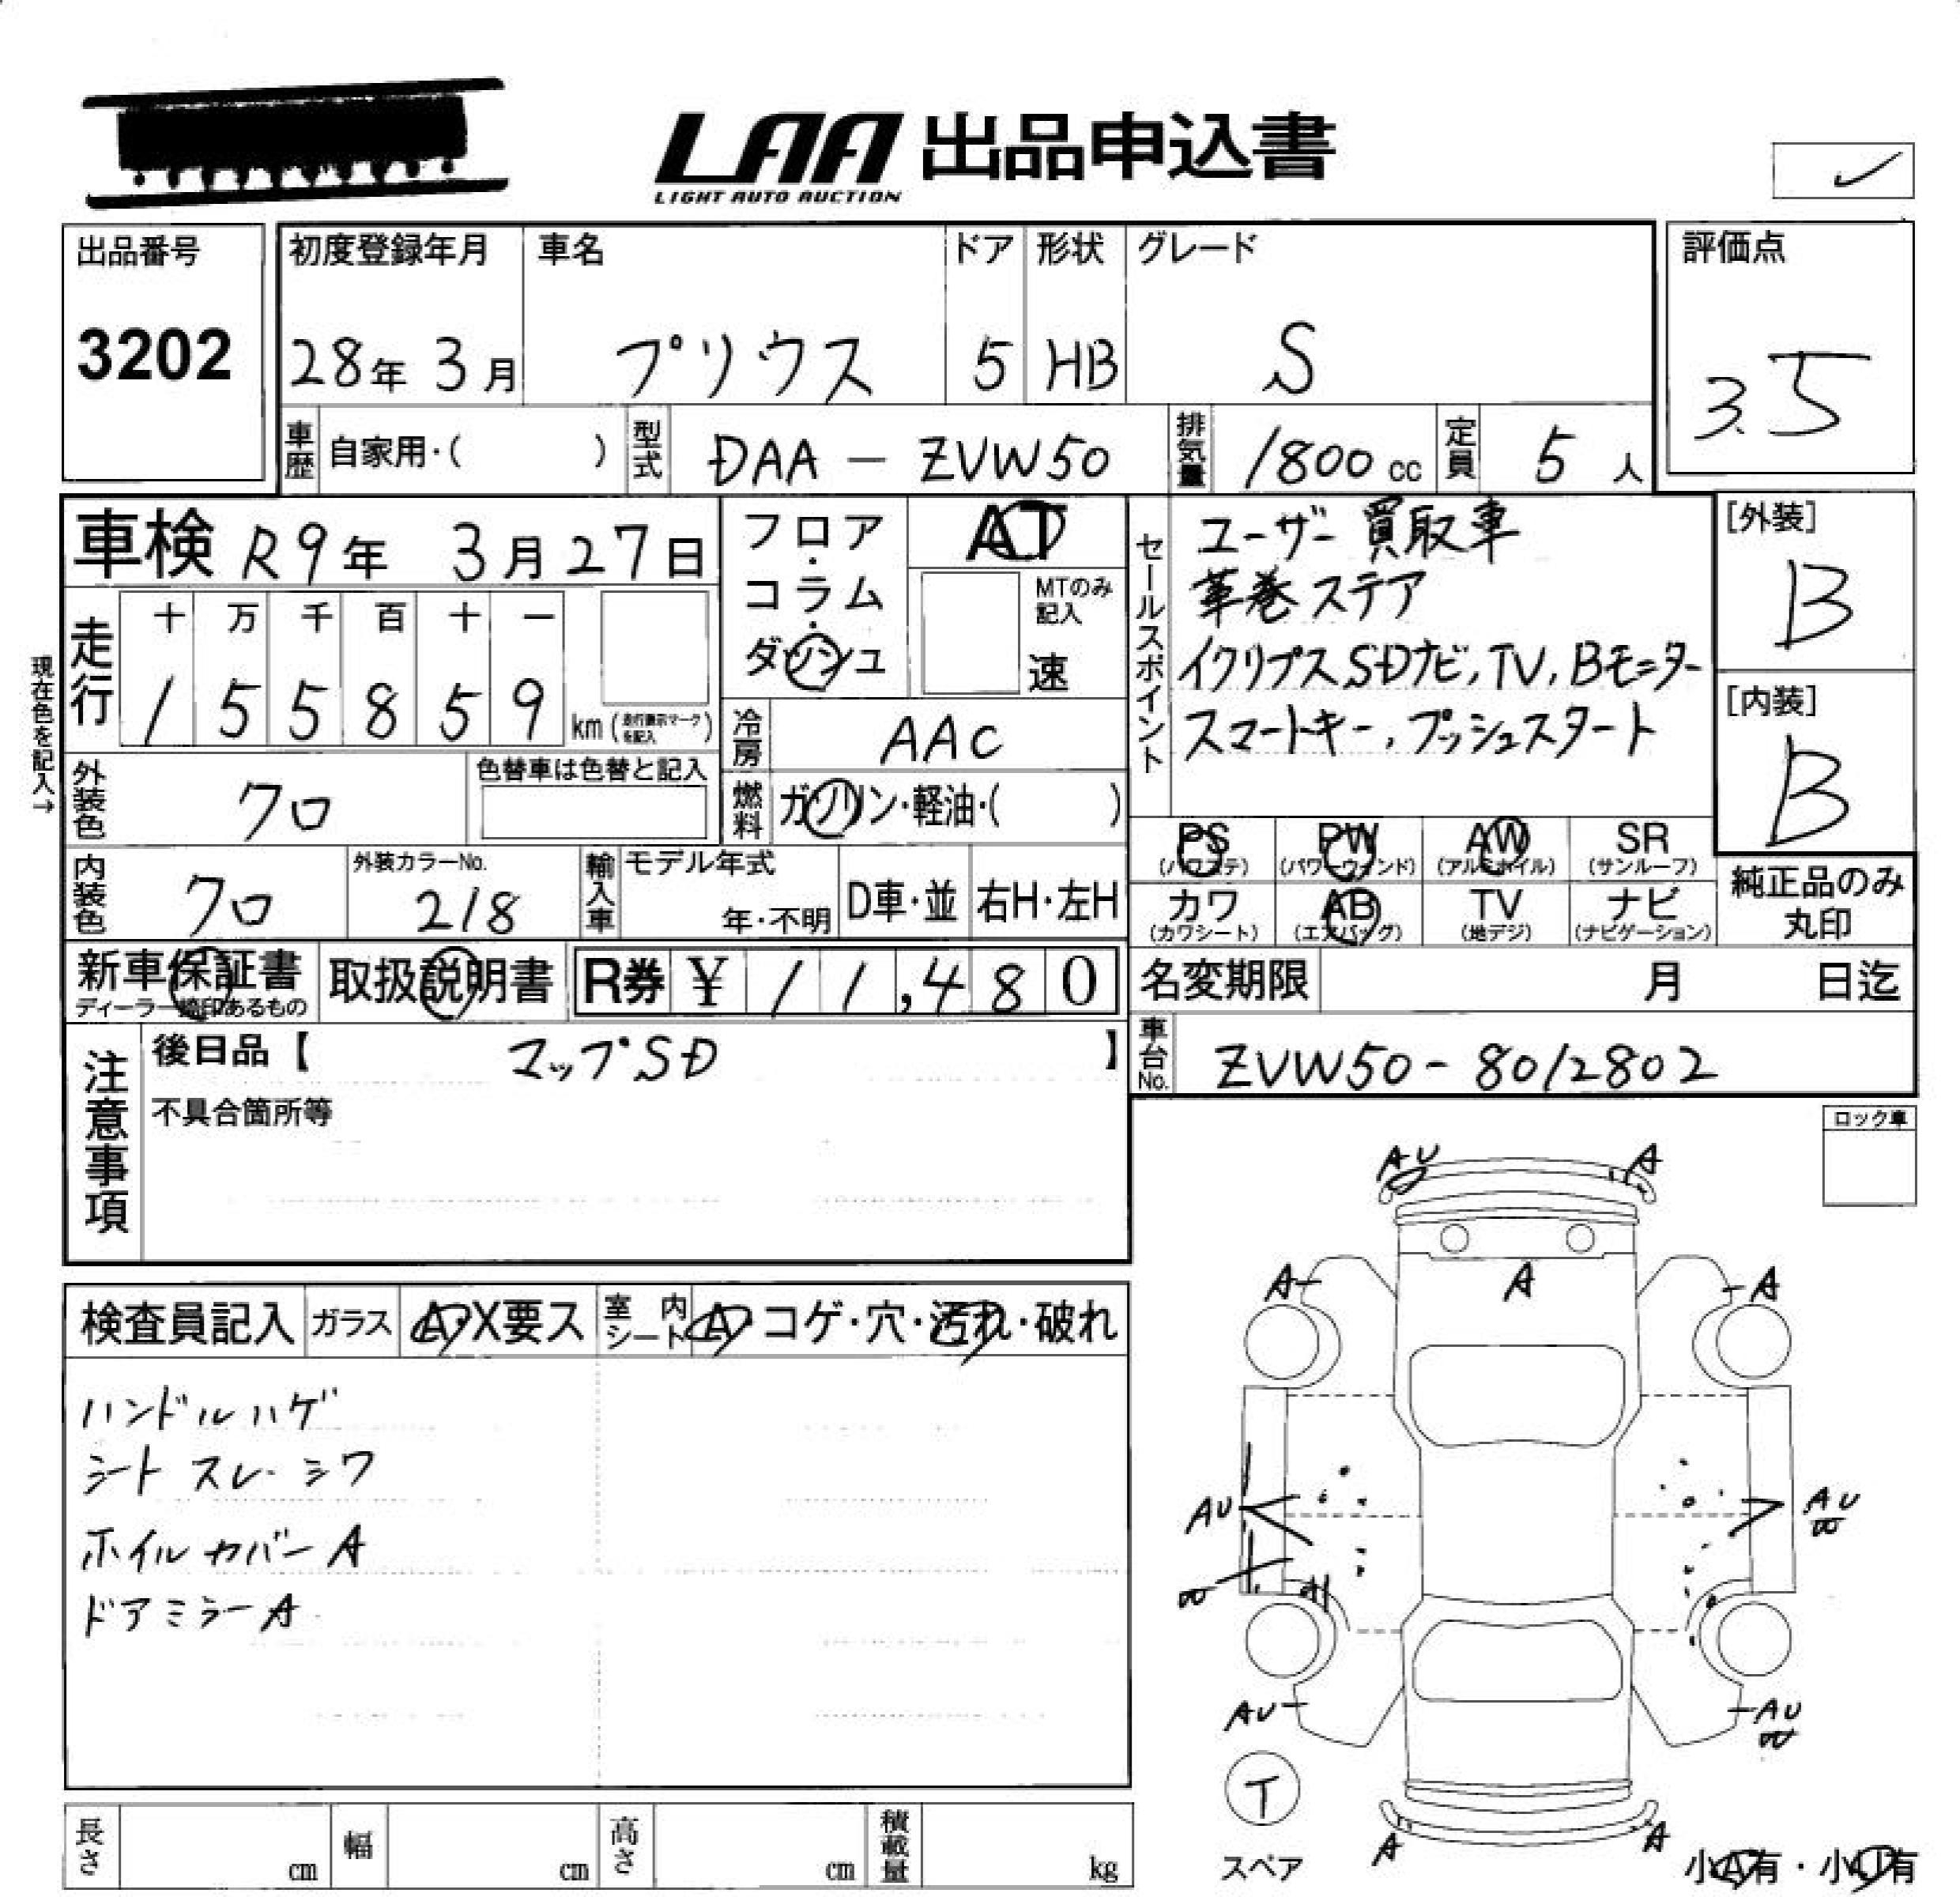 LAA 出品申込書
LIGHT AUTO AUCTION
出品番号
3202
初度登録年月
28年 3月
車名
プリウス
ドア
5
形状
HB
グレード
S
評価点
3.5
車歴 自家用・( )
型式 DAA - ZVW50
排気量 1800 cc
定員 5 人
車検 R9年 3月27日
現在色を記入→
走行
十 万 千 百 十 一
1 5 5 8 5 9 km (走行表示マークを記入)
フロア・コラム・ダッシュ
AT
MTのみ記入
速
冷房 AAC
燃料 ガソリン・軽油・( )
外装色 クロ
色替車は色替と記入
内装色 クロ
外装カラーNo.
218
輸入車
モデル年式
年・不明
D車・並
右H・左H
セールスポイント
ユーザー買取車
革巻ステア
イクリプスSDナビ,TV,Bモニター
スマートキー,プッシュスタート
[外装]
B
[内装]
B
PS (パワステ)
PW (パワーウィンド)
AW (アルミホイル)
SR (サンルーフ)
カワ (カワシート)
AB (エアバッグ)
TV (地デジ)
ナビ (ナビゲーション)
純正品のみ丸印
新車保証書
取扱説明書
R券 ¥ 11,480
名変期限 月 日迄
車台No. ZVW50-8012802
注意事項
後日品【 マップSD 】
不具合箇所等
ロック車
検査員記入
ガラス A・X要ス
室内シート A・コゲ・穴・汚れ・破れ
ハンドルハゲ
シート スレ・シワ
ホイルカバーA
ドアミラーA
AU A
A A A
AU AU
AU AU
T
スペア
A A
小A有・小U有
長さ cm
幅 cm
高さ cm
積載量 kg